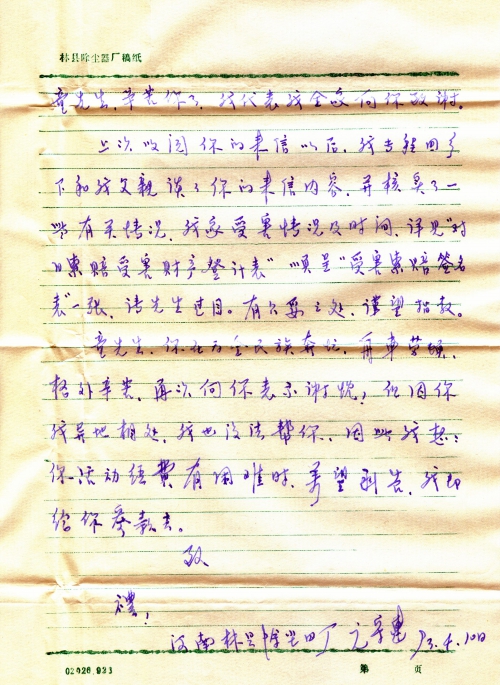 林县除尘器厂稿纸
童先生,辛苦你了,我代表我全家向你致谢。
上次收阅你的来信以后,我专程回乡
下和我父亲谈了你的来信内容,并核实了一
些有关情况,我家受害情况及时间,详见"对
日索赔受害财产登计表"顺呈"受害索赔签名
表"一张,请先生过目。有欠妥之处,谨望指教。
童先生,你在为全民族奔忙,再車劳顿,
格外辛苦,再次向你表示谢忱,但因你
我异地相处,我也没法帮你,因此我想:
你活动经费有困难时,希望函告,我即
给你 款去。
致
礼!
河南林县除尘四厂 元 93.4.10日
02026.923
第 页